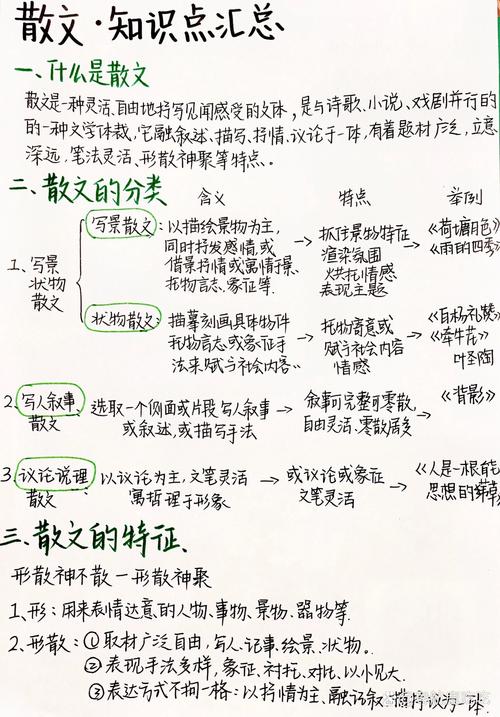 散文·知识点汇总
一、什么是散文
散文是一种灵活、自由地抒写见闻感受的文体，是与诗歌、小说、戏剧并行的
的一种文学体裁，它融叙述、描写、抒情、议论于一体，有着题材广泛，立意
深远，笔法灵活、形散神聚等特点。
二、散文的分类 含义 特点 举例
1、写景
状物
散文
写景散文：以描绘景物为主，
同时抒发感情，或
借景抒情或寓情于景、
托物言志、象征等.
→ 抓住景物特征
渲染氛围
烘托情感
表现主题
→ 《荷塘月色》
《雨的四季
状物散文：描摹刻画具体物件
托物言志或象征手
法来赋与社会内容。
→ 托物寄意或
赋与社会内容
情感
→ 《白杨礼赞》
《牵牛花》
叶圣陶
2、写人叙事
散文
选取一个侧面或片段写人叙事
或叙述，或描写手法
→ 叙事可完整可零散，
自由灵活、零散居多
→ 《背影》
3、议论说理
散文
以议论为主，文笔灵活
寓哲理于形象
→ 或议论或象征
文笔灵活
→ 《人是一根能
思想的苇草
三、散文的特征、
形散神不散—形散神聚
1、形：用来表情达意的人物、事物、景物、器物等.
2、形散：①取材广泛自由，写人、记事、绘景、状物。
②表现手法多样，象征、衬托、对比、以小见大.
③表达方式不拘一格：以抒情为主，融记叙、描